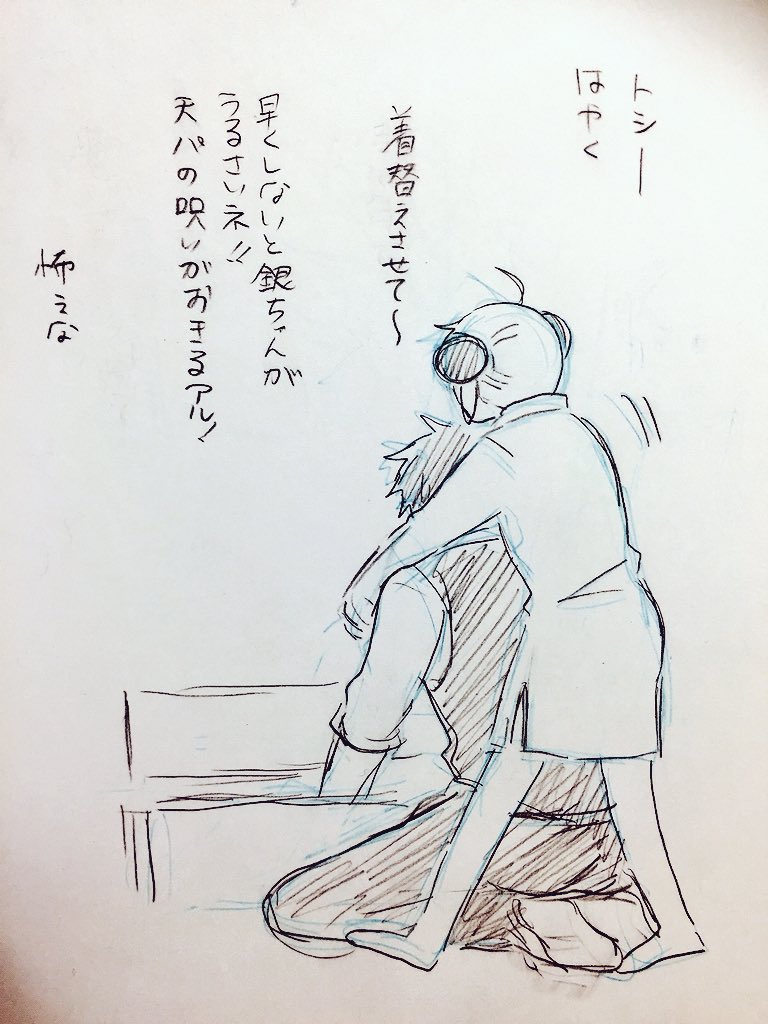 トシー
はやく
着替えさせて〜
早くしないと銀ちゃんが
うるさいネ!!
天パの呪いがおきるアル!
怖えな